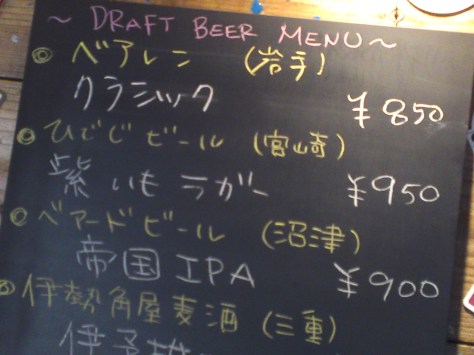 ~ DRAFT BEER MENU ~
◎ベアレン (岩手)
クラシック ¥850
◎ひでじビール (宮崎)
紫いもラガー ¥950
◎ベアードビール (沼津)
帝国IPA ¥900
◎伊勢角屋麦酒 (三重)